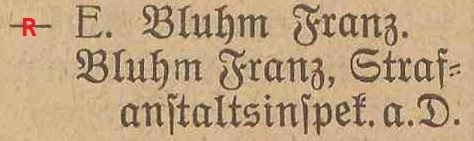 -R- E. Bluhm Franz.
Bluhm Franz, Straf⸗
anſtaltsinſpek. a. D.